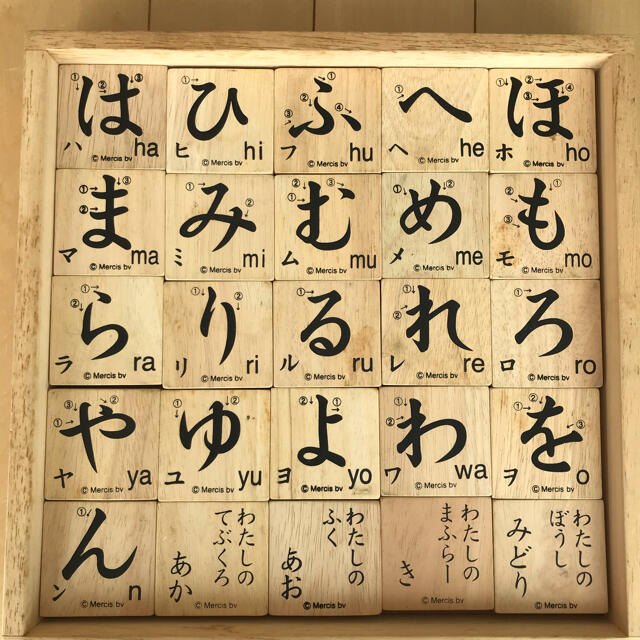 は ハ ha © Mercis bv
ひ ヒ hi © Mercis bv
ふ フ hu © Mercis bv
へ ヘ he © Mercis bv
ほ ホ ho © Mercis bv
ま マ ma © Mercis bv
み ミ mi © Mercis bv
む ム mu © Mercis bv
め メ me © Mercis bv
も モ mo © Mercis bv
ら ラ ra © Mercis bv
り リ ri © Mercis bv
る ル ru © Mercis bv
れ レ re © Mercis bv
ろ ロ ro © Mercis bv
や ヤ ya © Mercis bv
ゆ ユ yu © Mercis bv
よ ヨ yo © Mercis bv
わ ワ wa © Mercis bv
を ヲ o © Mercis bv
ん ン n © Mercis bv
わたしの
てぶくろ
あか
© Mercis bv
わたしの
ふく
あお
© Mercis bv
わたしの
まふらー
き
© Mercis bv
わたしの
ぼうし
みどり
© Mercis bv